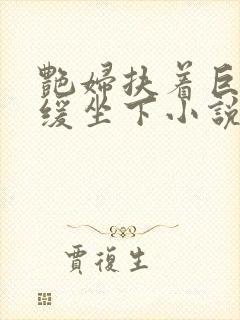 艷婦扶着巨
緩坐下小說
賈復生